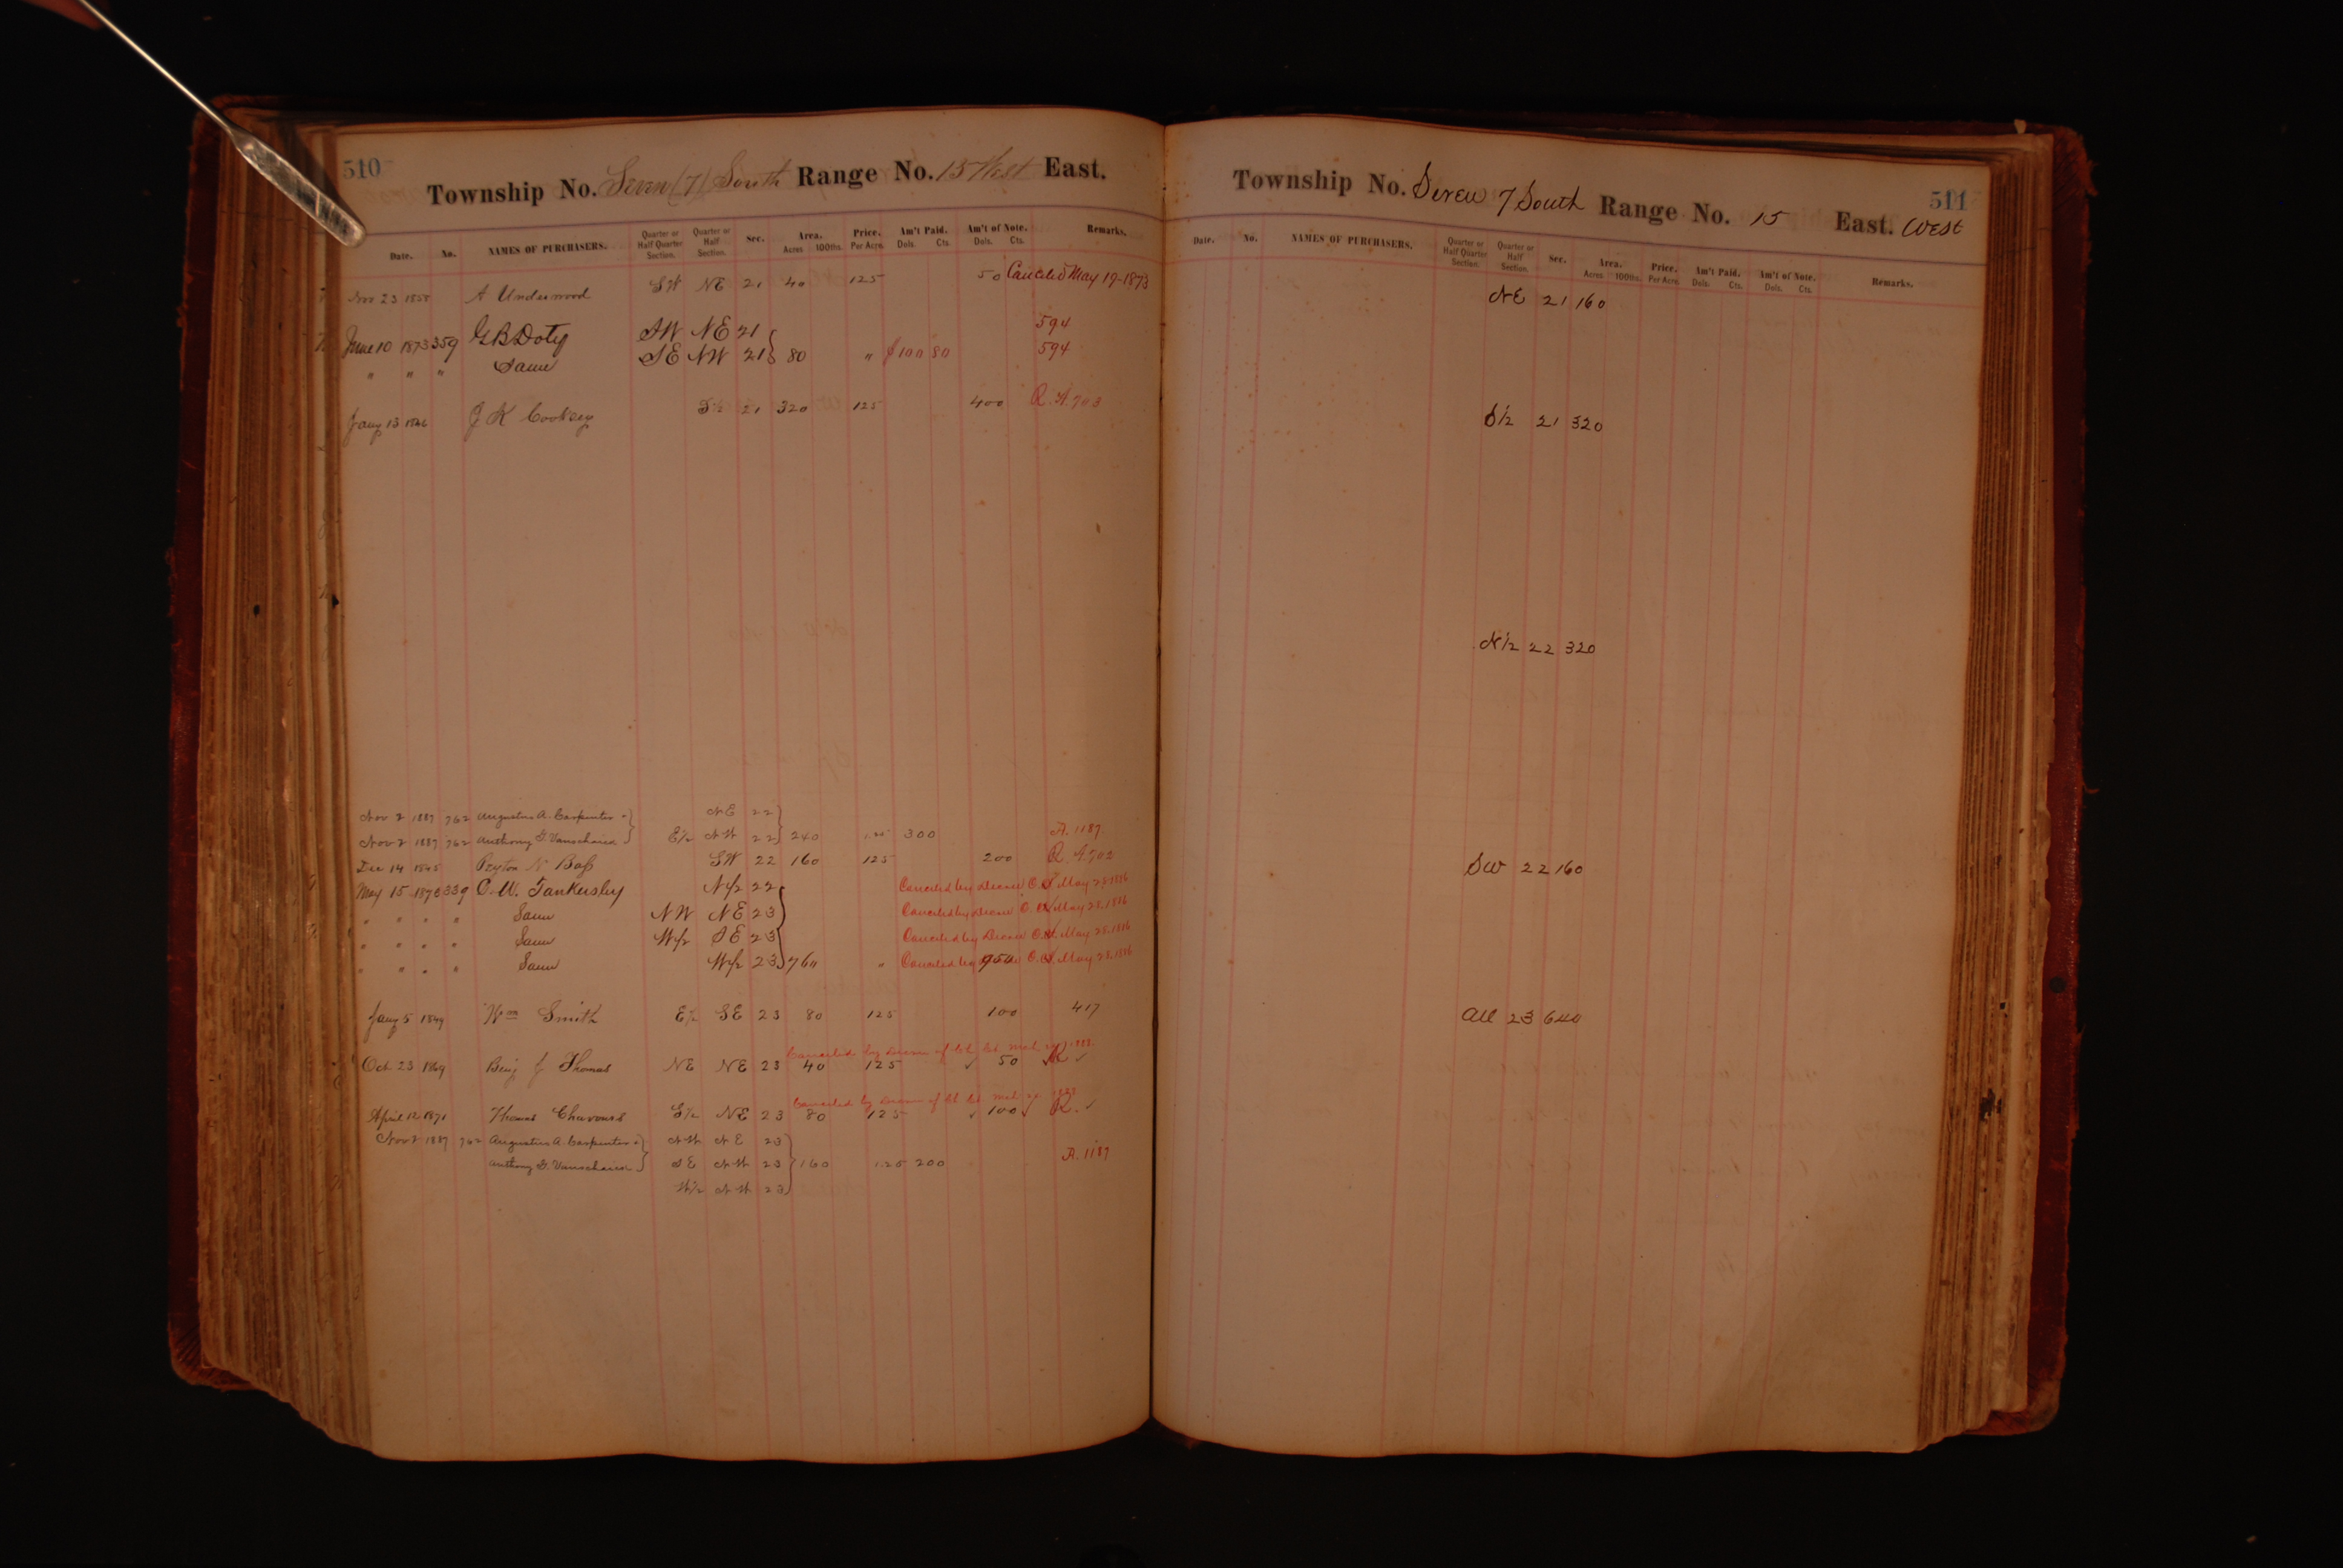 510
Township No. Seven (7) South Range No. 15 West East.
Date. No. NAMES OF PURCHASERS. Quarter or Half Quarter Section. Quarter or Half Section. Sec. Area. Acres 100ths. Price. Per Acre. Am't Paid. Dols. Cts. Am't of Note. Dols. Cts. Remarks.
Nov 23 A Underwood SW NE 21 40 125 50 Canceled May 19-1873
June 10 1873 359 G B Doty SW NE 21 594
" " " Same SE NW 21 80 " $100 80 594
Jany 13 J K S½ 21 320 125 400 R. A. 703
Nov 2 1887 762 Augustus A. Carpenter & NE 22
Nov 2 1887 762 Anthony G. E½ NW 22 240 1.25 300 A. 1187
Dec 14 Peyton N Baß SW 22 160 125 200 R. A. 702
May 15 1873 339 C. W. Tankersly N/2 22 Canceled by decree May
" " " " Same NW NE 23 Canceled by Decree May 28.1886
" " " " Same W/2 SE 23 Canceled by Decree May 28.1886
" " " " Same W/2 23 760 " Canceled by 950 May 28.1886
Jany 5 1849 Wm Smith E½ SE 23 80 125 100 417
Canceled by Decree of
Oct 23 1869 Benj J Thomas NE NE 23 40 125 ✓ 50 ✓ R ✓
Canceled by Decree of
April 12 1871 Thomas Chavous S½ NE 23 80 125 ✓ 100 ✓ R. ✓
Nov 2 1887 762 Augustus A. Carpenter & NW NE 23
Anthony G. SE NW 23 160 1.25 200 A. 1187
W½ NW 23
511
Township No. Seven 7 South Range No. 15 East. West
Date. No. NAMES OF PURCHASERS. Quarter or Half Quarter Section. Quarter or Half Section. Sec. Area. Acres 100ths. Price. Per Acre. Am't Paid. Dols. Cts. Am't of Note. Dols. Cts. Remarks.
NE 21 160
S½ 21 320
N½ 22 320
SW 22 160
All 23 640